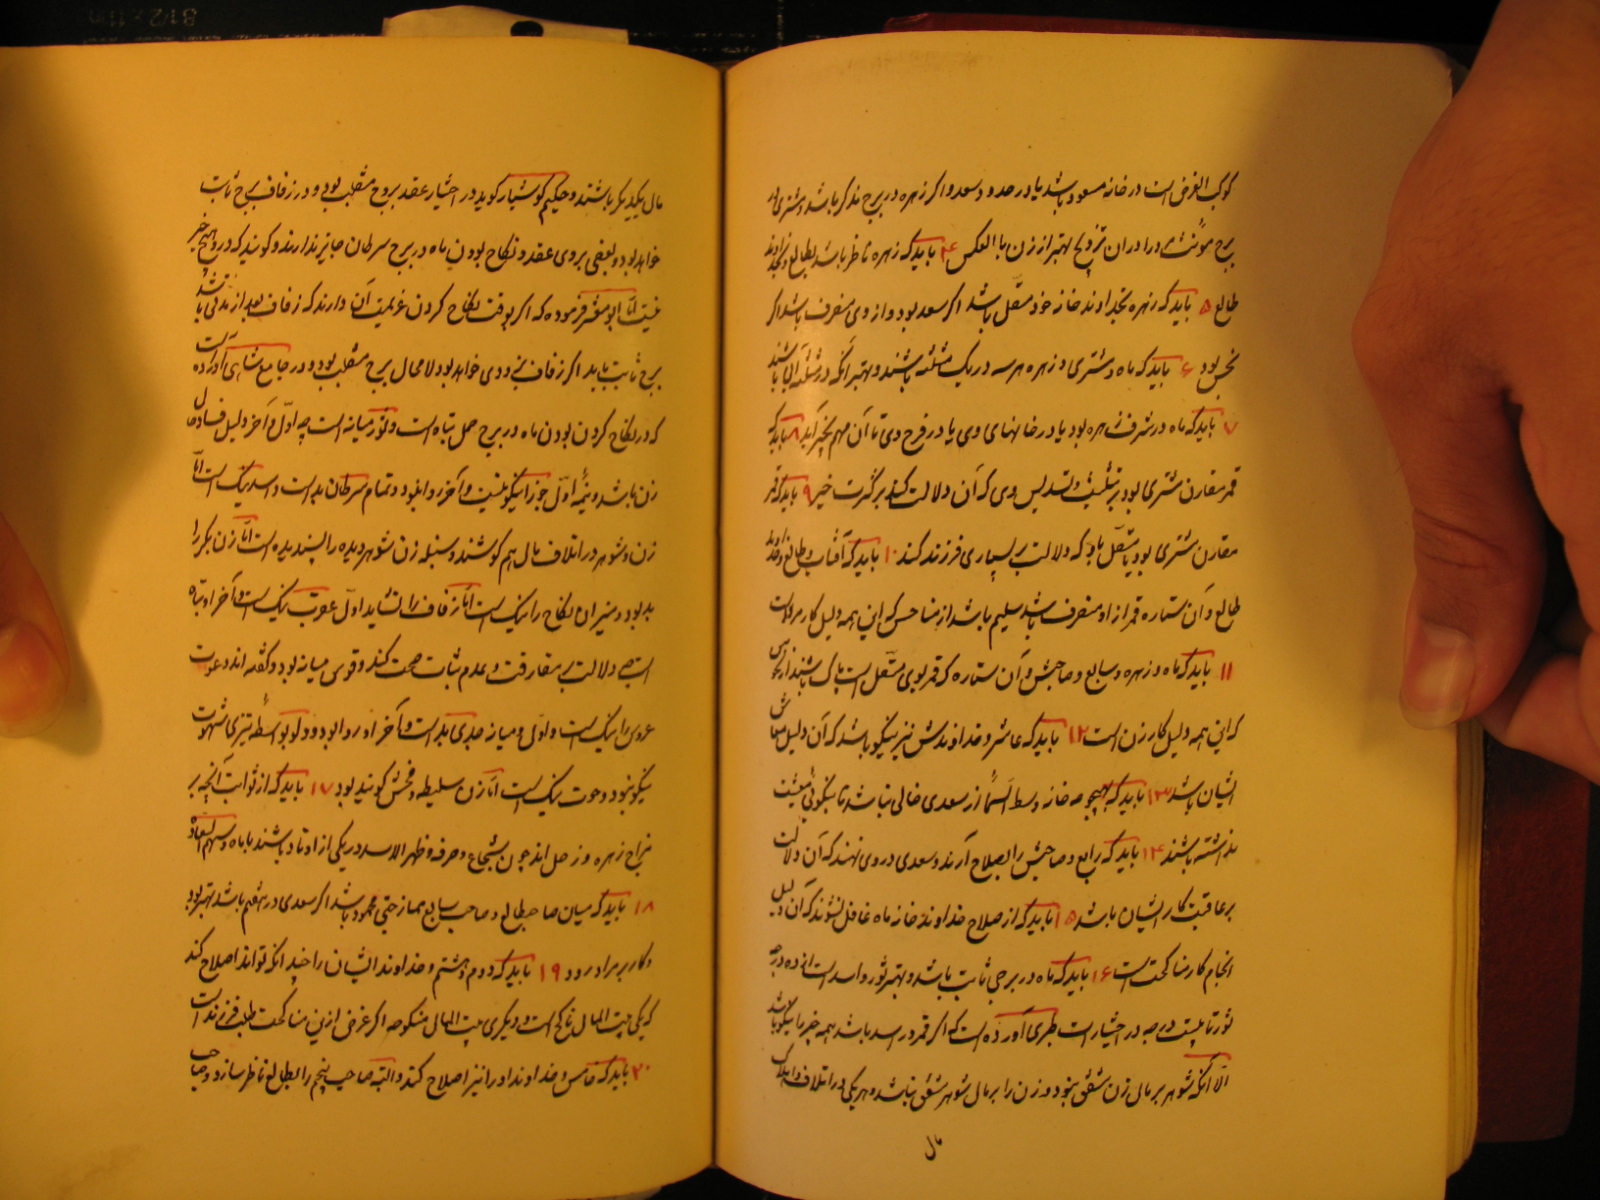 کوکب الغرض است در خانه مسعود باشد یا در حدود سعد و اگر زهره در برج مذکر باشد و مشتری در
برج مؤنث در ازدواج تزویج بهتر از زن با العکس ۴ باید که زهره ناظر باشد بطالع و بخداوند
طالع ۵ باید که زهره بخداوند خانه خود متصل باشد اگر سعد بود و از وی منصرف باشد اگر
نحس بود ۶ باید که ماه و مشتری و زهره هر سه در یک مثلثه باشند و بهتر آنکه در مثلثه آبی باشند
۷ باید که ماه در شرف زهره بود یا در خانهای وی یا در فرح وی تا آن مهم بخیر آید ۸ باید که
قمر مقارن مشتری بود بر تثلیث و تسدیس وی که آن دلالت کند بر کثرت خیر ۹ باید که قمر
مقارن مشتری بود یا متصل باو که دلالت بر بسیاری فرزند کند ۱۰ باید که آفتاب و طالع و خداوند
طالع و آن ستاره قمر از او منصرف باشد سلیم باشد از مناحس که این همه دلیل کار مرد است
۱۱ باید که ماه و زهره و سابع و صاحبش و آن ستاره که قمر بوی متصل است پاک باشند از نحس
که این همه دلیل کار زن است ۱۲ باید که عاشر و خداوندش نیز نیکو باشد که آن دلیل معاش
ایشان باشد ۱۳ باید که بهیچوجه خانه وسط السما از سعدی خالی نباشد تا نیکوئی معیشت
نداشته باشند ۱۴ باید که رابع و صاحبش را بصلاح آرند و سعدی در وی نهند که آن دلالت
بر عاقبت کار ایشان باشد ۱۵ باید که از صلاح خداوند خانه ماه غافل نشوند که آن دلیل
انجام کار مناکحت است ۱۶ باید که ماه در برجی ثابت باشد و بهتر ثور و اسد است از ده درجه
ثور تا بیست درجه در اختیارات طبری آورده است که اگر قمر در اسد باشد همه چیز را نیکو باشد
الا آنکه شوهر بر مال زن مشفق نبود و زن را بر مال شوهر شفقی نباشد و هر یکی در اتلاف و اهلاک
مال
مال یکدیگر باشند و حکیم کوشیار گوید در اختیار عقد بروج منقلب بود و در زفاف برج ثابت
خواهد بود و بعضی بروی عقد و نکاح بودن ماه در برج سرطان جایز ندارند و گویند که در او هیچ خیر
نیست اما ابومعشر فرموده که اگر بوقت نکاح کردن عزیمت آن دارند که زفاف بعد از مدتی باشد
برج ثابت باید اگر زفاف بزودی خواهد بود لامحال برج منقلب بود و در جامع شاهی آورده است
که در نکاح کردن بودن ماه در برج حمل تباه است و ثور میانه است چه اول و آخر دلیل فساد حال
زن باشد و نیمه اول جوزا نیکو نیست و آخر روا بود و تمام سرطان بد است و اسد نیک است اما
زن و شوهر در اتلاف مال هم کوشند و سنبله زن شوهر دیده را پسندیده است اما زن بکر را
بد بود و میزان نکاح را نیک است اما زفاف را نشاید اول عقرب نیک است و آخر او تباه
است دلالت بر مفارقت و عدم ثبات صحبت کند و قوس میانه بود و گفته اند دعوت
عروس را نیک است و اول و میانه جدی بد است و آخر او روا بود و دلو بواسطه تیزی شهوت
نیکو نبود و حوت نیک است اما زن سلیطه و فحش گوینده بود ۱۷ باید که از ثوابت آنچه بر
مزاج زهره و زحل اند چون شجاع و صرفه و ظهر الاسد در یکی از اوتاد باشند با ماه و سهم السعاده
۱۸ باید که میان صاحب طالع و صاحب سابع ممازجتی محمود باشد اگر سعدی در هفتم باشد بهتر بود
و کار بر مراد رود ۱۹ باید که دوم و هشتم و خداوند ایشان را چندانکه تواند اصلاح کند
که یکی بیت المال ناکح است و دیگری بیت المال منکوحه اگر غرض ازین مناکحت طلب فرزند است
۲۰ باید که خامس و خداوند او را نیز اصلاح کند و البته صاحب پنجم را بطالع ناظر سازد و صاحب